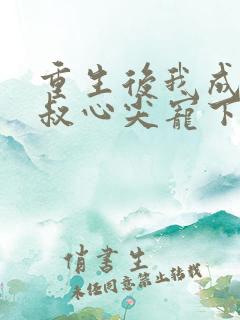 重生後我成
叔心尖寵下
俏書生
未經同意禁止轉載